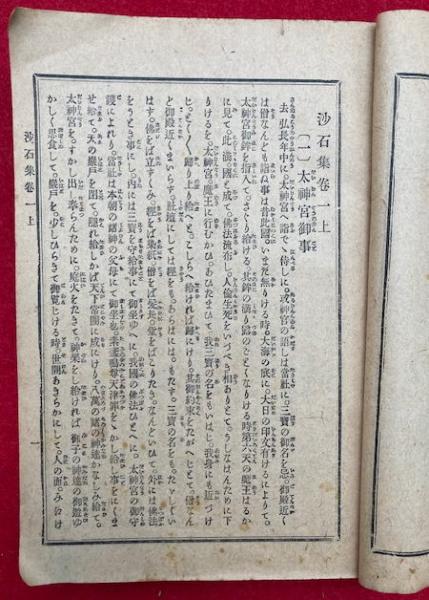 沙石集卷一上
〔一〕太神宮御事
去弘長年中に。太神宮へ詣で侍しに。或神官の語しは當社に。三寶の御名を忌。御殿近く
は僧なんども詣ぬ事は。昔此國いまだ無りける時。大海の底に。大日の印文有けるによりて。
太神宮御鉾を指入て。さぐり給ける。其鉾の滴り露のごとくなりける時。第六天の魔王はるか
に見て。此滴り。國と成て。佛法流布し。人倫生死をいづべき相ありとて。うしなはんために下
りけるを。太神宮。魔王に行むかひ。あひたまひ。我三寶の名をもいはじ。我身にも近づけ
じ。とくとく歸り上り給へと。こしらへ給ければ歸にけり。其御約束をたがへじとて。僧なん
ど御殿近くまいらず。社壇にしては。經をもあらはには。もたず。三寶の名をも。たゞしくい
はず。佛をば立すくみ。經をば染紙。僧をば髮長。堂をばこりたき。なんどいひて。外には佛法
をうとき事にし。内には三寶を守給事にて御坐ゆへに。我國の佛法ひとへに。太神宮の御守
護によれり。當社は本朝の諸神の父母にて御坐也。素盞嗚尊天津罪ををかし給し事をにくま
せ給て。天の巖戸を閉て。隱れ給しかば。天下常闇に成にけり。八萬の諸の神達かなしみ給て。
太神宮を。すかし出し奉らんために。庭火をたきて。神樂をし給ければ。御子の神達の御遊ゆ
かしく思食して。巖戸を。少しひらきて御覽じける時。世間あきらかにして。人の面。みゑけ
沙石集卷一上
一